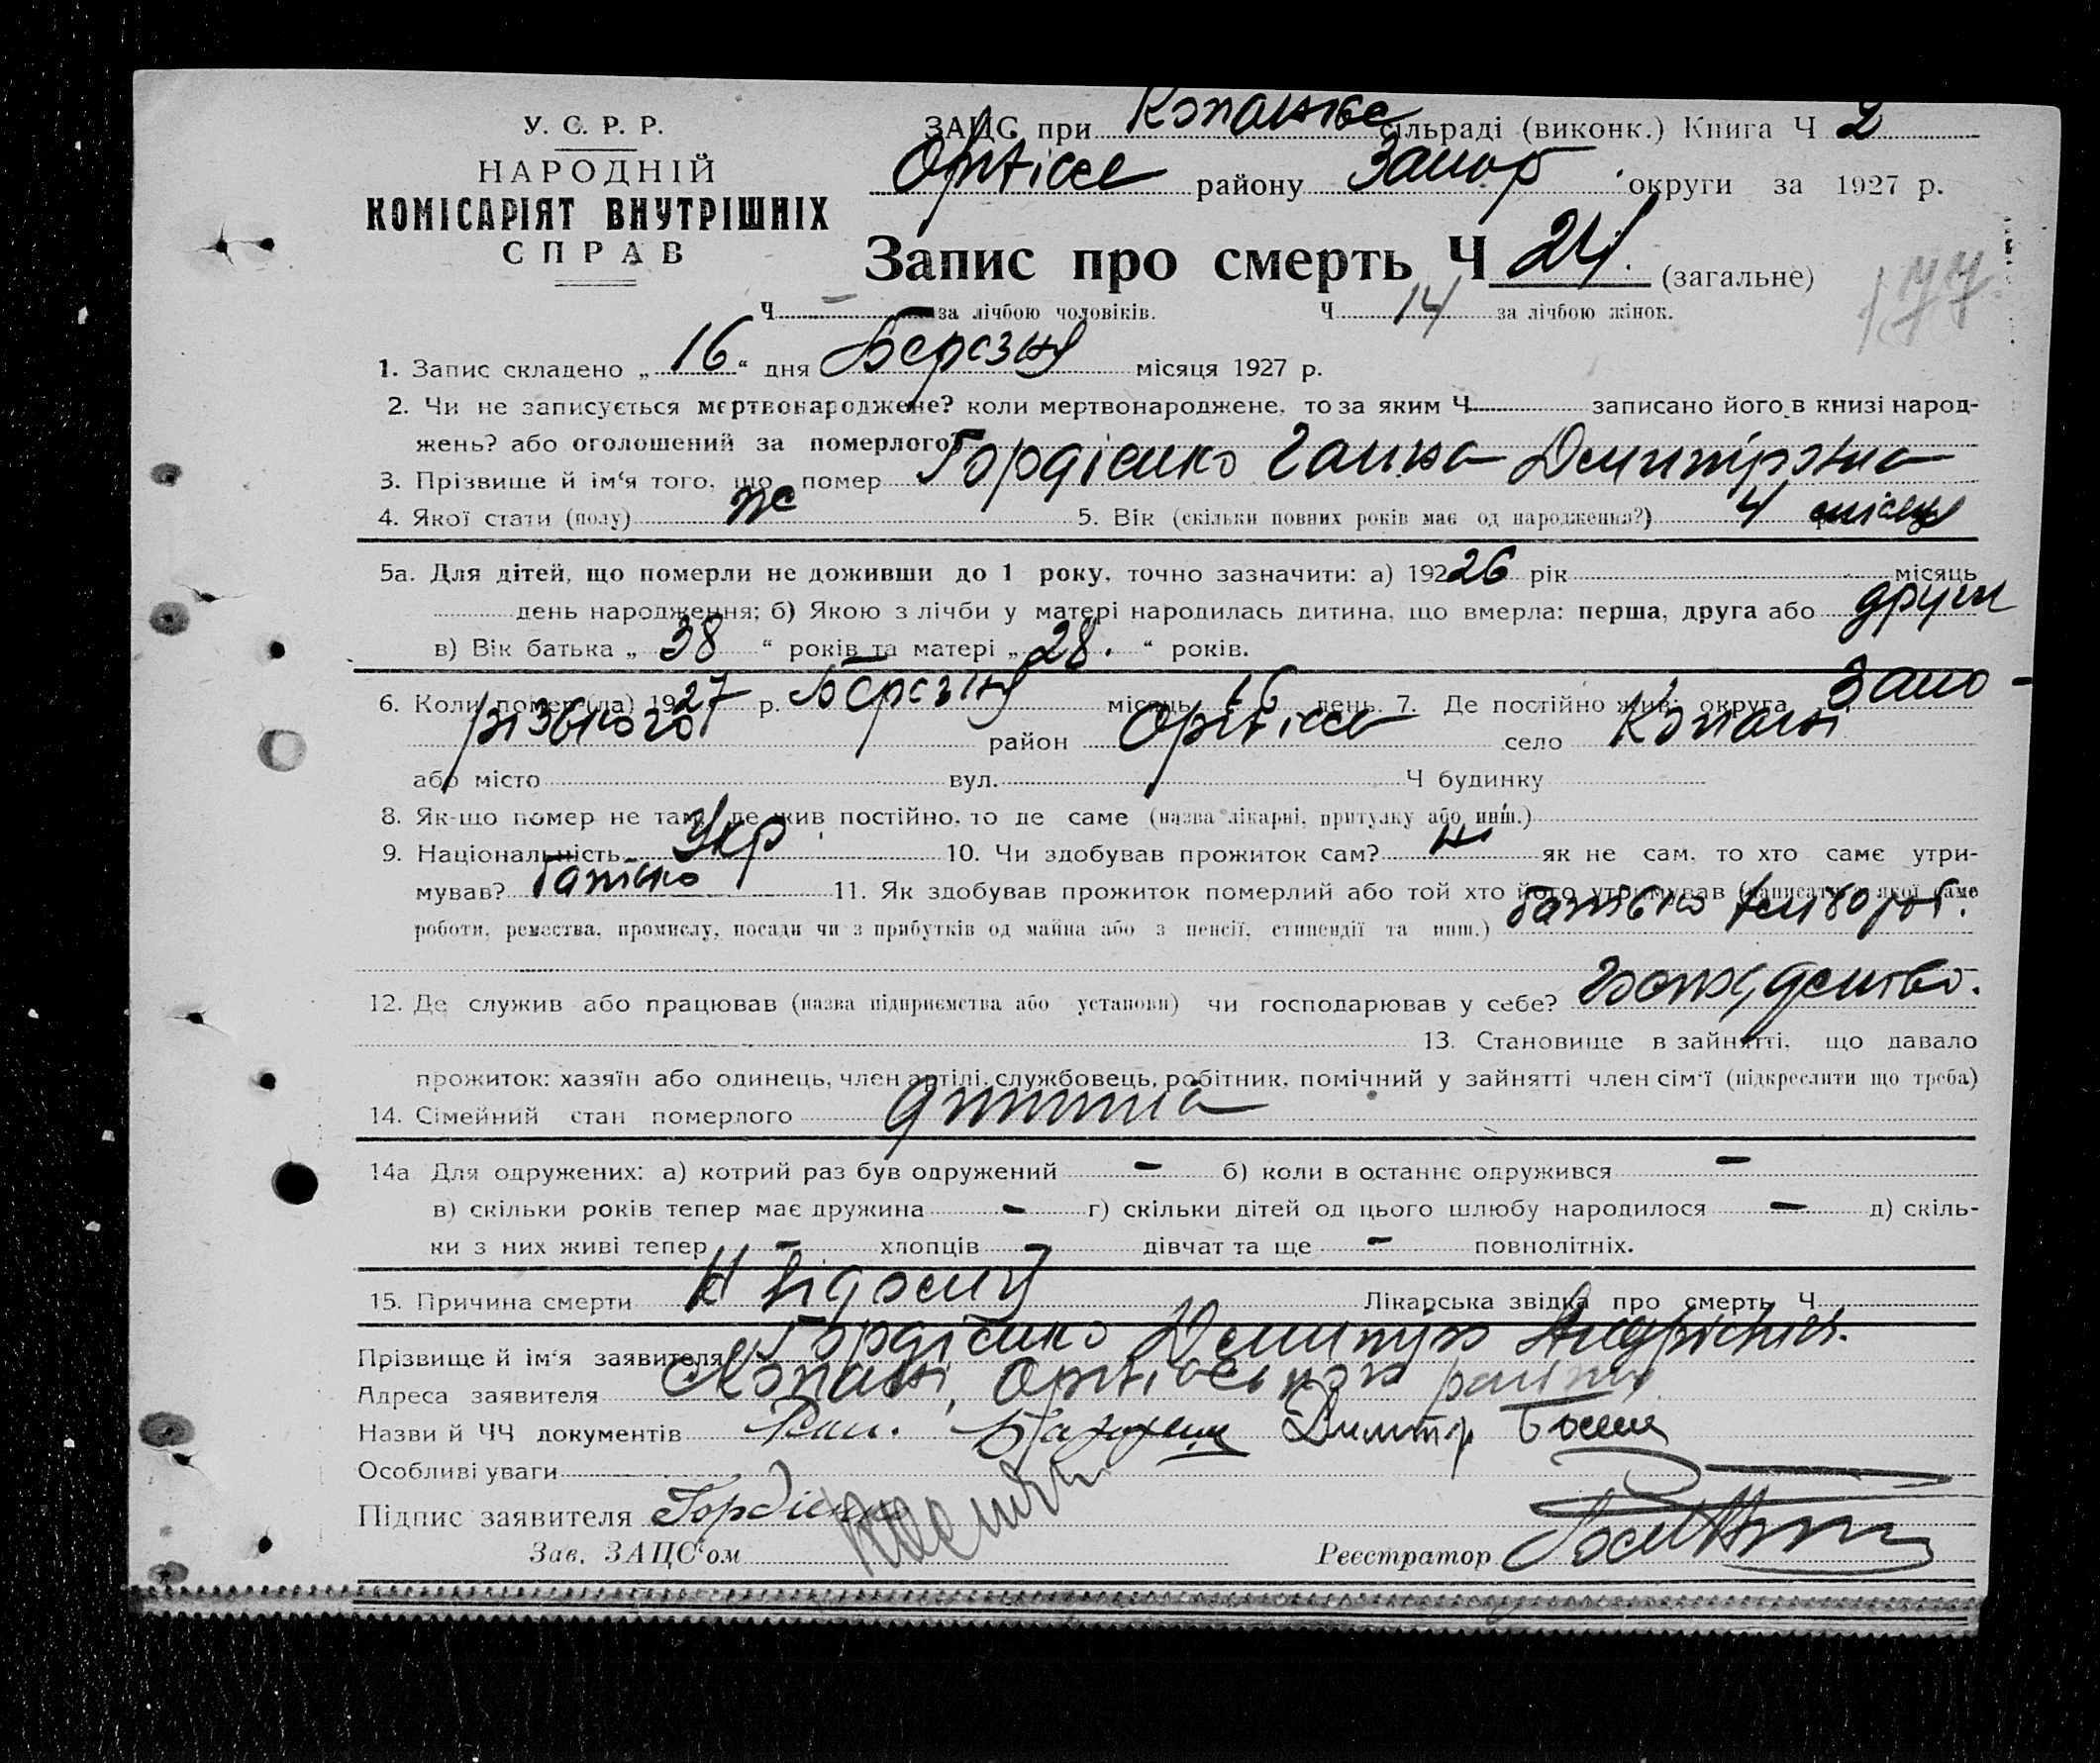 У. С. Р. Р.
НАРОДНІЙ
КОМІСАРІЯТ ВНУТРІШНІХ
СПРАВ
ЗАЦС при Копанське сільраді (виконк.) Книга Ч 2
Оріхісс району Запор округи за 1927 р.
Запис про смерть Ч 24. (загальне)
177
Ч – за лічбою чоловіків. Ч 14 за лічбою жінок.
1. Запис складено „ 16 “ дня Березня місяця 1927 р.
2. Чи не записується мертвонароджене? коли мертвонароджене, то за яким Ч записано його в книзі народ-
жень? або оголошений за померлого?
3. Прізвище й ім‘я того, що помер Гордієнко Ганна Демитровна
4. Якої стати (полу) же 5. Вік (скільки повних років має од народження?) 4 місяця
5а. Для дітей, що померли не доживши до 1 року, точно зазначити: а) 192 26 рік місяць
день народження; б) Якою з лічби у матері народилась дитина, що вмерла: перша, друга або
в) Вік батька „ 38 “ років та матері „ 28. “ років.
6. Коли помер (ла) 19 27 р. Березня місяць 16 день. 7. Де постійно жив: округа Запо-
різького район село Копані
або місто вул. Ч будинку
8. Як-що помер не там, де жив постійно, то де саме (назва лікарні, притулку або инш.)
9. Національність Укр 10. Чи здобував прожиток сам? ні як не сам, то хто саме утри-
мував? батько 11. Як здобував прожиток померлий або той хто його утримував (написати з якої саме
роботи, ремества, промислу, посади чи з прибутків од майна або з пенсії, стипендії та инш.) батько хлібороб.
12. Де служив або працював (назва підприємства або установи) чи господарював у себе?
13. Становище в зайнятті, що давало
прожиток: хазяїн або одинець, член артілі, службовець, робітник, помічний у зайнятті член сім‘ї (підкреслити що треба)
14. Сімейний стан померлого дитина
14а Для одружених: а) котрий раз був одружений – б) коли в останнє одружився –
в) скільки років тепер має дружина – г) скільки дітей од цього шлюбу народилося – д) скіль-
ки з них живі тепер – хлопців – дівчат та ще – повнолітніх.
15. Причина смерти Н відому Лікарська звідка про смерть Ч
Прізвище й ім‘я заявителя Гордієнко Демитро Андрієвич.
Адреса заявителя Копані, Оріхівського району
Назви й ЧЧ документів
Особливі уваги
Підпис заявителя Гордієнко
Зав. ЗАЦС‘ом Реєстратор